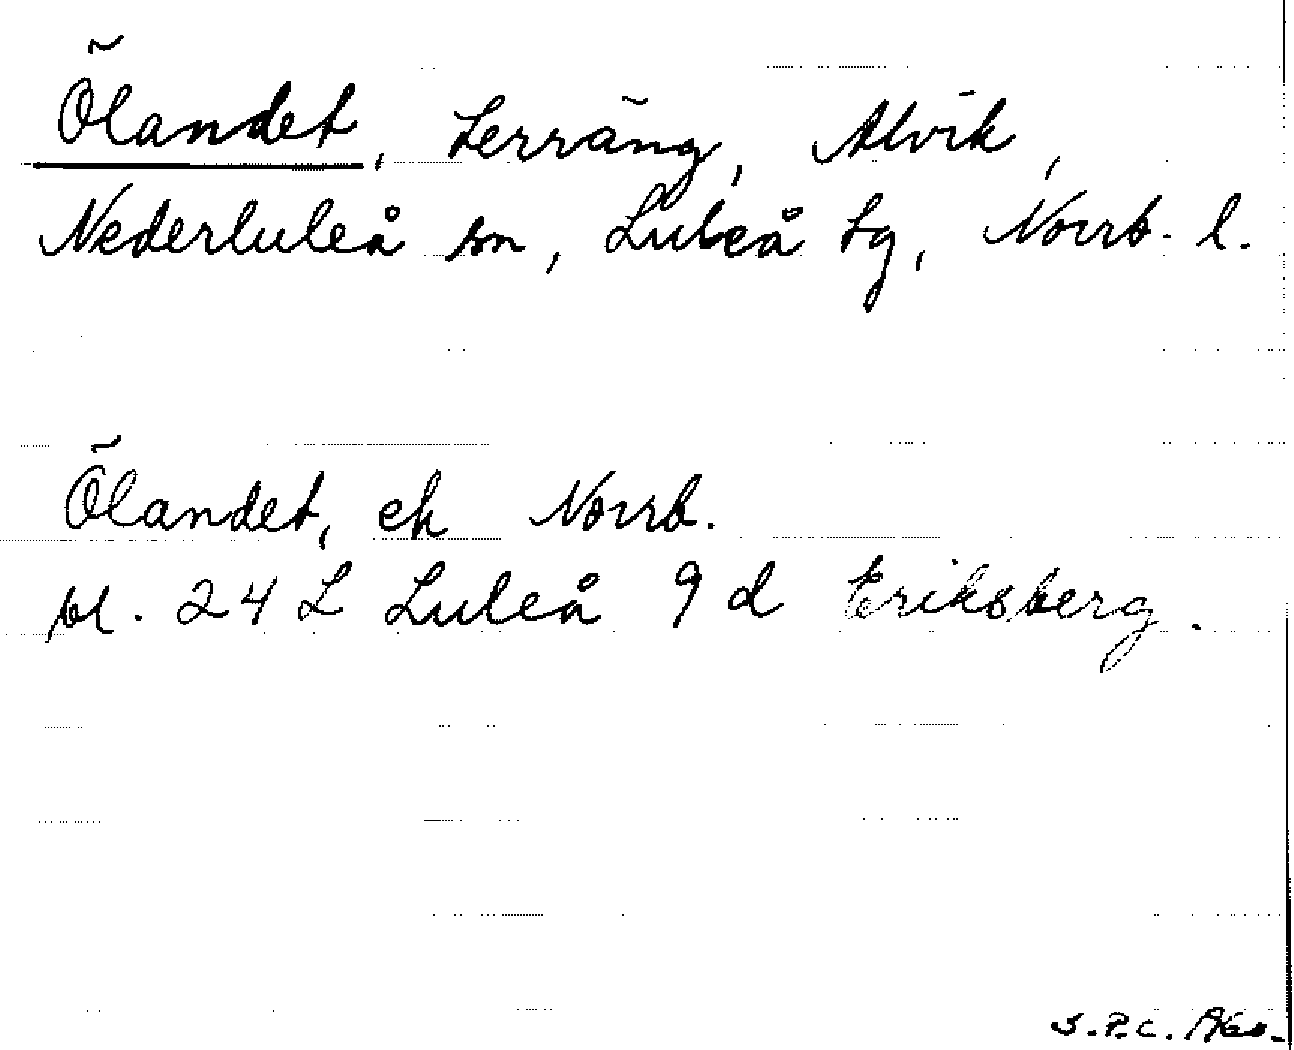 Ölandet, Lerräng, Alvik,
Nederluleå sn, Luleå tg, Norrb. l.
Ölandet, ek Norrb.
bl. 24 L Luleå 9 d Eriksberg.
S.P.C.